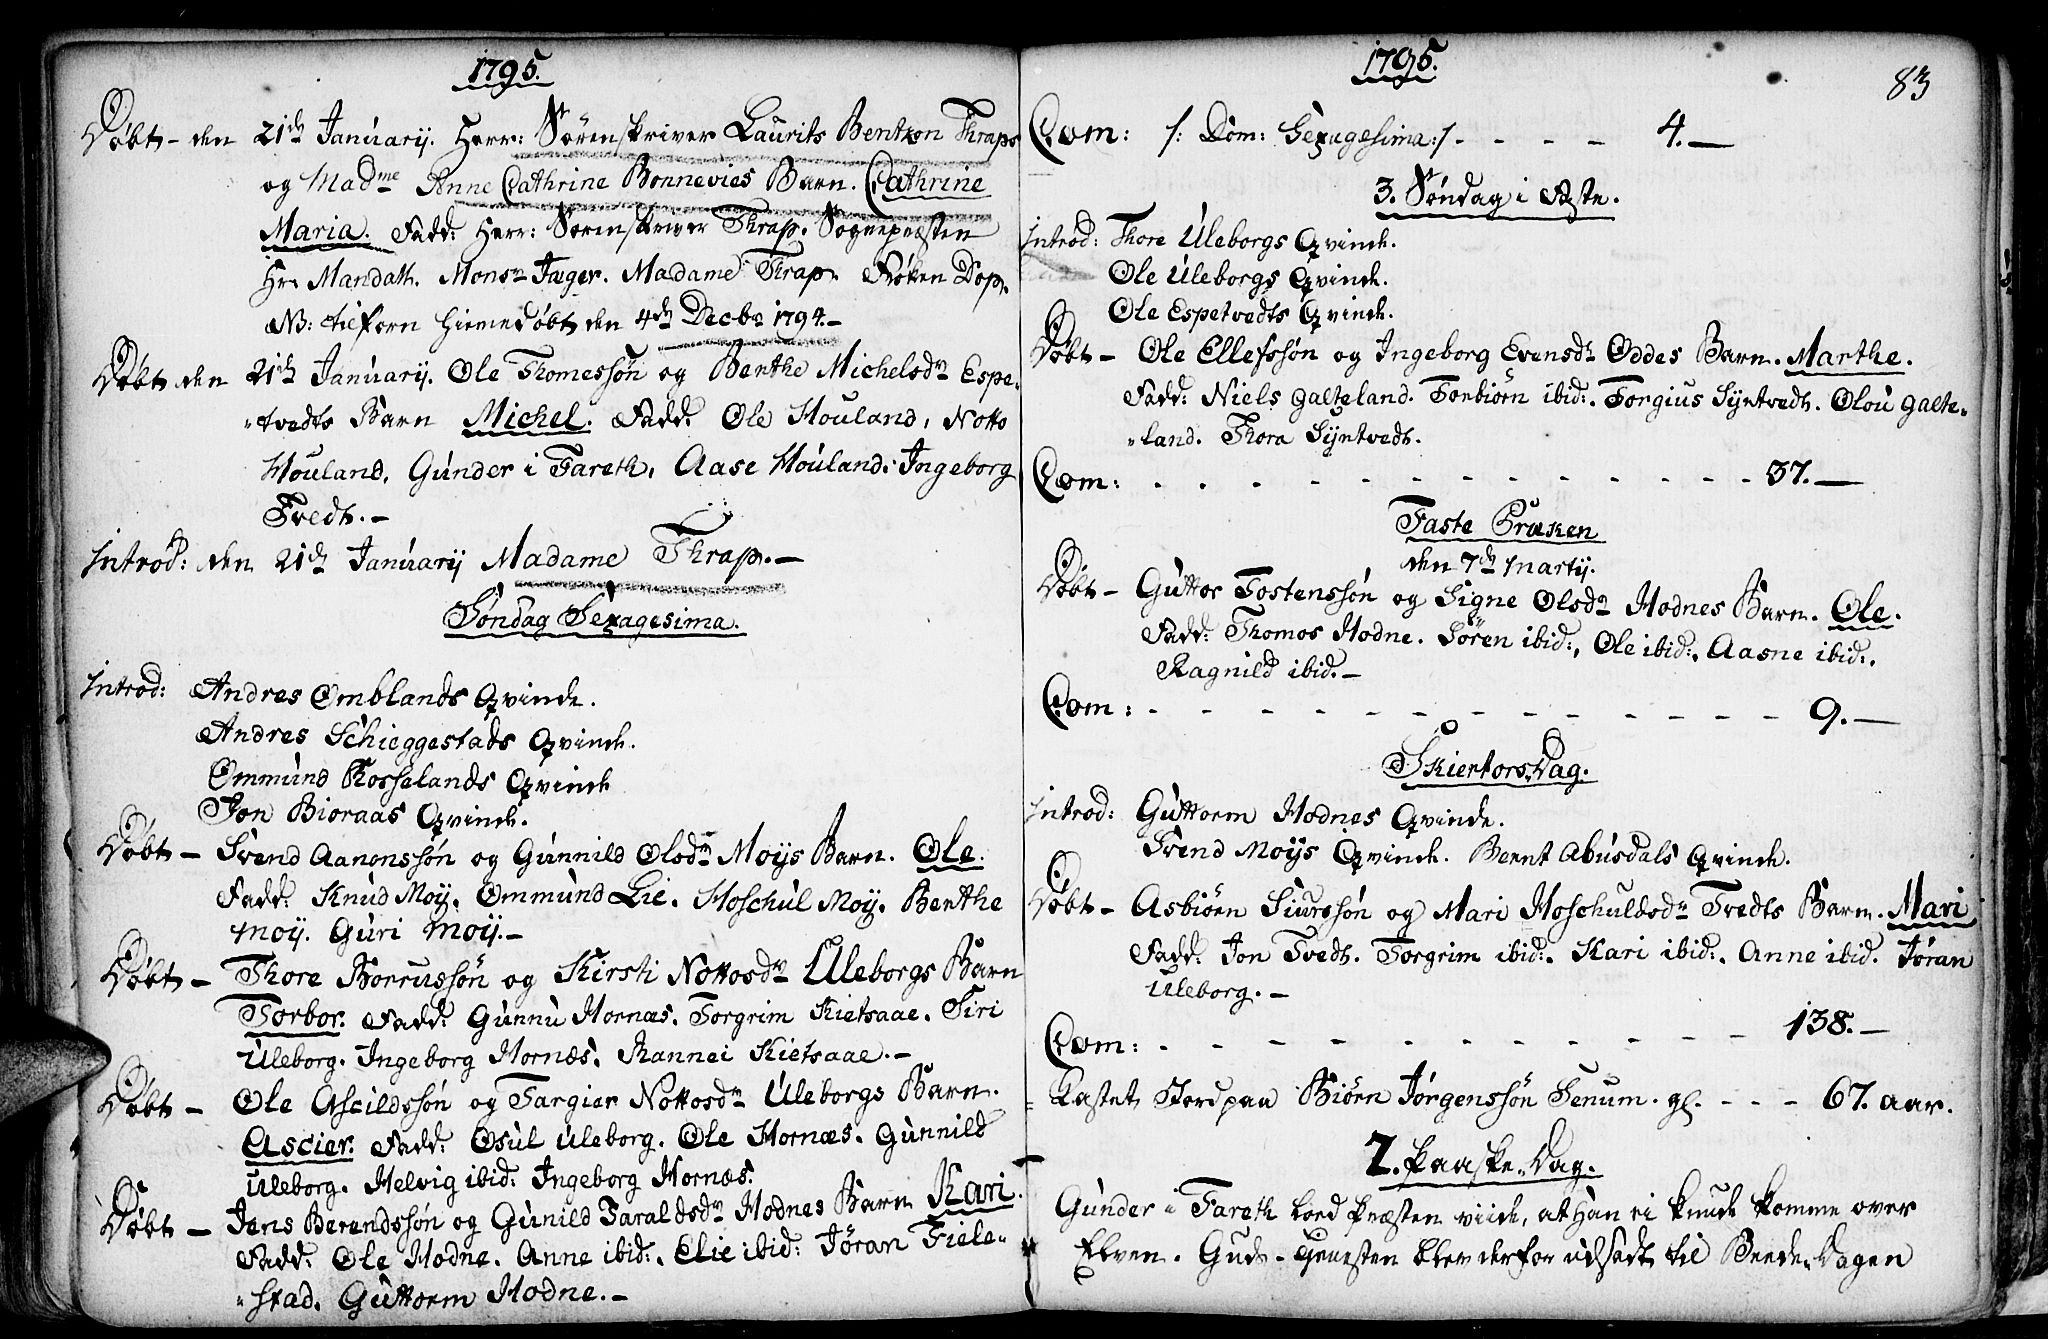 1795.
Døbt – den 21de Januarij. Herr: Sørenskriver Laurits Bentzon Thraps
og Madme Anne Cathrine Bonnevies Barn. Cathrine
Maria. Fadd: Herr: Sørenskriver Thrap. Sognepræsten
Hr. Mandath. Monsr Jæger. Madame Thrap. Frøken Dop.
NB: tilforn hiemedøbt den 4de Decbr 1794. –
Døbt den 21de Januarij. Ole Thomessøn og Benthe Michelsdr Espe-
tvedts Barn Michel. Fadd: Ole Houland, Notto
Houland, Gunder i Fareth, Aase Houland. Ingeborg
Tvedt. –
Introd: den 21de Januarij Madame Thrap. –
Søndag Sexagesima.
Introd: Andres Omblands Qvinde.
Andres Schieggestads Qvinde.
Ommund Rosselands Qvinde
Jon Bioraas Qvinde.
Døbt – Svend Aanonssøn og Gunnild Olsdr Moijs Barn. Ole.
Fadd: Knud Moij. Ommund Lie. Hoschul Moij. Benthe
Moij. Guri Moij. –
Døbt – Thore Borrussøn og Kirsti Nottosdr Uleborgs Barn
Torbor. Fadd: Gunnu Hornæs. Torgrim Kietsaae. Siri
Uleborg. Ingeborg Hornæs. Rannei Kietsaae. –
Døbt – Ole Ascildssøn og Targier Nottosdr Uleborgs Barn.
Ascier. Fadd: Osul Uleborg. Ole Hornæs. Gunnild
Uleborg. Helvig ibid: Ingeborg Hornæs.
Døbt – Jens Berendssøn og Gunild Taraldsdr Hodnes Barn Kari.
Fadd: Ole Hodne. Anne ibid:. Elie ibid: Jøran Fiele-
stad. Guttorm Hodne. –
1795.
83
Com: /: Dom: Sexagesima:/ - - - - 4. –
3. Søndag i Faste.
Introd: Thore Uleborgs Qvinde.
Ole Uleborgs Qvinde.
Ole Espetvedts Qvinde.
Døbt – Ole Ellefssøn og Ingeborg Evensdr Oddes Barn. Marthe.
Fadd: Niels Galteland. Torbiørn ibid:. Torgius Sÿntvedt. Olou Galte-
land. Thora Sÿntvedt.
Com: - - - - - - - - - - - - 37. –
Faste Præken
den 7de Martij.
Døbt – Guttor Tostenssøn og Signe Olsdr Hodnes Barn. Ole.
Fadd: Thomos Hodne. Søren ibid:, Ole ibid:, Aasne ibid:.
Ragnild ibid. –
Com: - - - - - - - - - - - - 9. –
SkiertorsDag.
Introd: Guttorm Hodnes Qvinde.
Svend Moijs Qvinde. Bernt Abusdals Qvinde.
Døbt – Asbiørn Siurssøn og Mari Hoschuldsdr Tvedts Barn. Mari
Fadd: Jon Tvedt. Torgrim ibid:. Kari ibid:. Anne ibid. Jøran
Uleborg. –
Com: - - - - - - - - - - - - 138. –
Kastet Jord paa Biørn Jørgenssøn Senum. gl. - - - 67. aar.
2. Paaske-Dag.
Gunder i Fareth lod Præsten viide, at Han ei kunde komme over
Elven. Guds-Tienesten blev derfor udsadt til Beede-Dagen